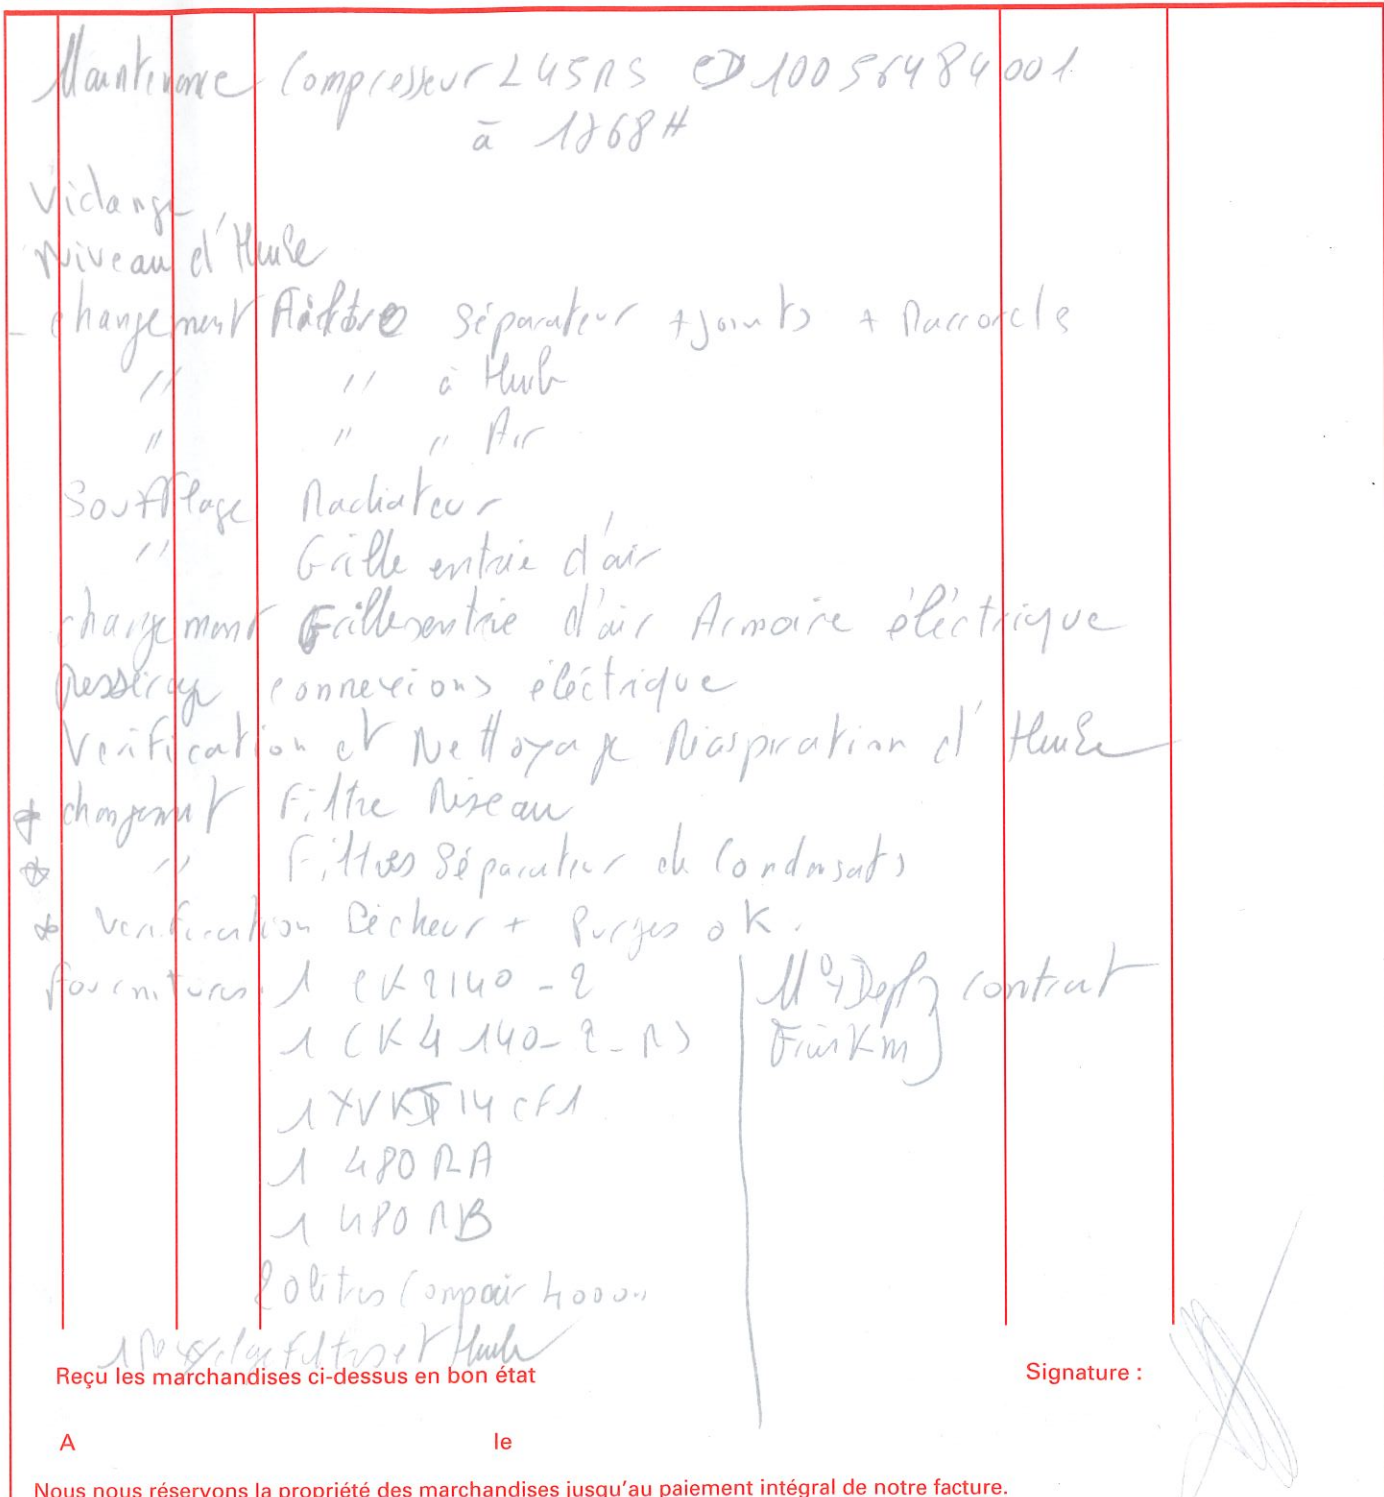 Maintenance Compresseur L45RS CD 10056484001
à 1768H
Vidange
Niveau d'Huile
- changement Filtre Séparateur + joints + Raccords
" " à Huile
" " " Air
Soufflage Radiateur
" Grille entrée d'air
changement Grilles entrée d'air Armoire éléctrique
Resserage connexions éléctrique
Verification et Nettoyage Réaspiration d'Huile
* changement Filtre Réseau
* " Filtres Séparateur de Condensats
* Verification Sécheur + Purges OK.
fournitures 1 CK2140-2
1 CK4140-2-RS
1 480RA
1 480RB
20 litres Compair 4000
1 Recyclage filtres et Huile
M° Depl contrat
Frais Km
Reçu les marchandises ci-dessus en bon état
Signature :
A le
Nous nous réservons la propriété des marchandises jusqu'au paiement intégral de notre facture.